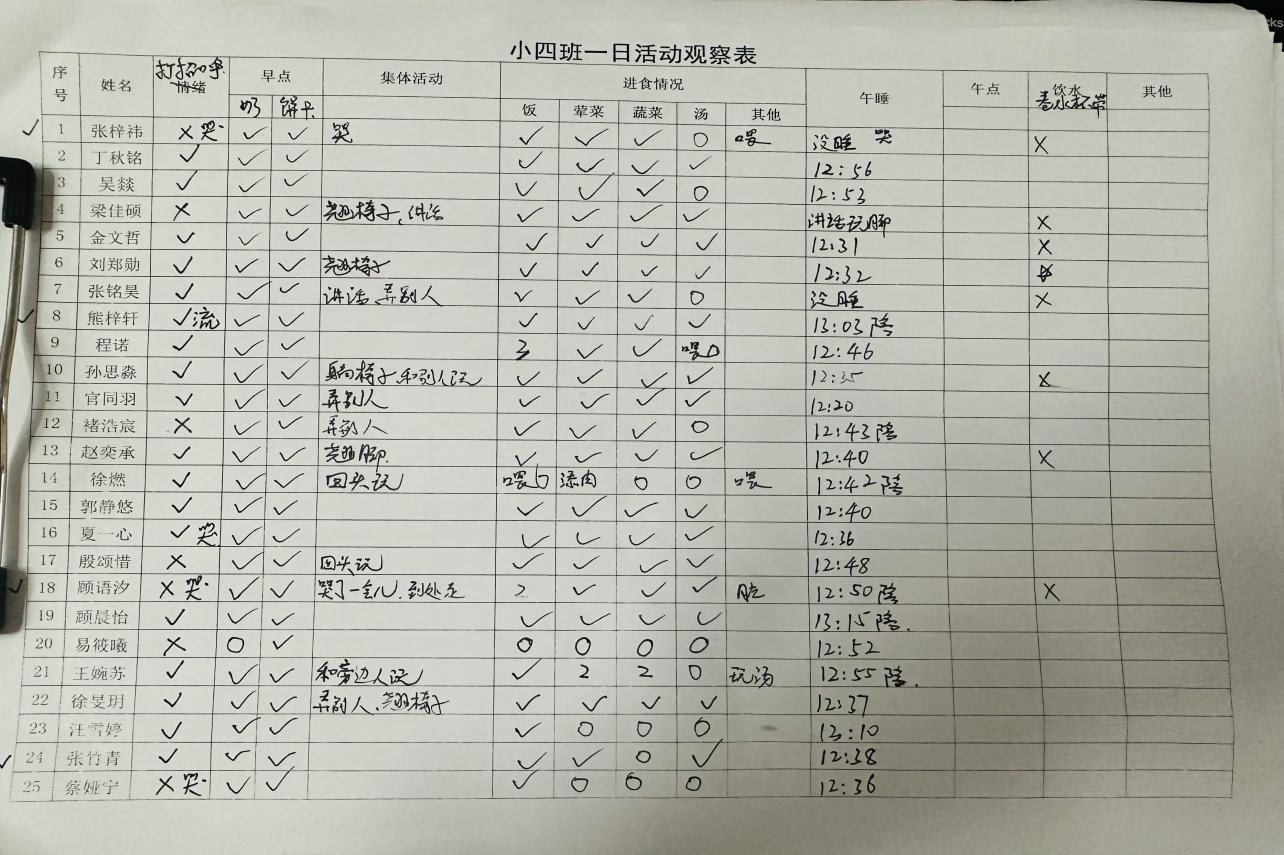 小四班一日活动观察表
序号 姓名 打招呼 情绪 早点 集体活动 进食情况 午睡 午点 饮水 其他
奶 饼干 饭 荤菜 蔬菜 汤 其他 水杯 带
✓ 1 张梓祎 × 哭 ✓ ✓ 哭 ✓ ✓ ✓ O 喂 没睡 哭 ×
2 丁秋铭 ✓ ✓ ✓ ✓ ✓ ✓ ✓ 12:56
3 吴燚 ✓ ✓ ✓ ✓ ✓ ✓ O 12:53
4 梁佳硕 × ✓ ✓ 翘椅子、讲话 ✓ ✓ ✓ ✓ 讲话玩脚 ×
5 金文哲 ✓ ✓ ✓ ✓ ✓ ✓ ✓ 12:31 ×
6 刘郑勋 ✓ ✓ ✓ 翘椅子 ✓ ✓ ✓ ✓ 12:32
7 张铭昊 ✓ ✓ ✓ 讲话 弄别人 ✓ ✓ ✓ O 没睡 ×
✓ 8 熊梓轩 ✓ 流 ✓ ✓ ✓ ✓ ✓ ✓ 13:03 陪
9 程诺 ✓ ✓ ✓ 3 ✓ ✓ 喂O 12:46
10 孙思淼 ✓ ✓ ✓ 躺椅子、和别人玩 ✓ ✓ ✓ ✓ 12:35 ×
11 官同羽 ✓ ✓ ✓ 弄别人 ✓ ✓ ✓ ✓ 12:20
12 褚浩宸 × ✓ ✓ 弄别人 ✓ ✓ ✓ O 12:43 陪
13 赵奕承 ✓ ✓ ✓ 翘脚 ✓ ✓ ✓ ✓ 12:40 ×
14 徐燃 ✓ ✓ ✓ 回头玩 喂 添肉 O O 喂 12:42 陪
15 郭静悠 ✓ ✓ ✓ ✓ ✓ ✓ ✓ 12:40
16 夏一心 ✓ 哭 ✓ ✓ ✓ ✓ ✓ ✓ 12:36
17 殷颂惜 × ✓ ✓ 回头玩 ✓ ✓ ✓ ✓ 12:48
✓ 18 顾语汐 × 哭 ✓ ✓ 哭了一会儿、到处走 2 ✓ ✓ ✓ 12:50 陪 ×
19 顾晨怡 ✓ ✓ ✓ ✓ ✓ ✓ ✓ 13:15 陪
20 易筱曦 × O ✓ O O O O 12:52
21 王婉苏 ✓ ✓ ✓ 和旁边人玩 ✓ 2 2 O 玩汤 12:55 陪
22 徐旻玥 ✓ ✓ ✓ 弄别人、翘椅子 ✓ ✓ ✓ ✓ 12:37
23 汪雪婷 ✓ ✓ ✓ ✓ O O O 13:10
✓ 24 张竹青 ✓ ✓ ✓ ✓ ✓ O ✓ 12:38
25 蔡娅宁 × 哭 ✓ ✓ ✓ O O O 12:36